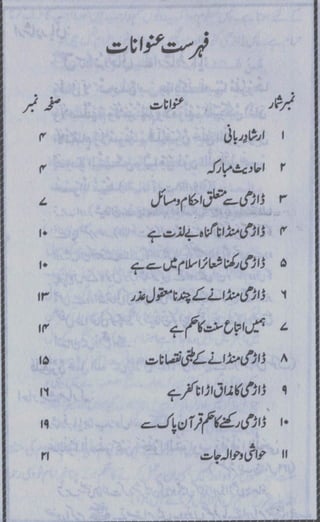 فہرست عنوانات
نمبر شمار عنوانات صفحہ نمبر
۱ ارشادِ ربانی ۴
۲ احادیث مبارکہ ۴
۳ ڈاڑھی سے متعلق احکام و مسائل ۷
۴ ڈاڑھی منڈانا گناہ بے لذت ہے ۱۰
۵ ڈاڑھی رکھنا شعائر اسلام میں سے ہے ۱۰
۶ ڈاڑھی منڈانے کے چند نامعقول عذر ۱۳
۷ ہمیں اتباع سنت کا حکم ہے ۱۴
۸ ڈاڑھی منڈانے کے طبی نقصانات ۱۵
۹ ڈاڑھی کا مذاق اڑانا کفر ہے
۱۰ ڈاڑھی رکھنے کا حکم قرآن پاک سے ۱۹
۱۱ حواشی و حوالہ جات ۲۱